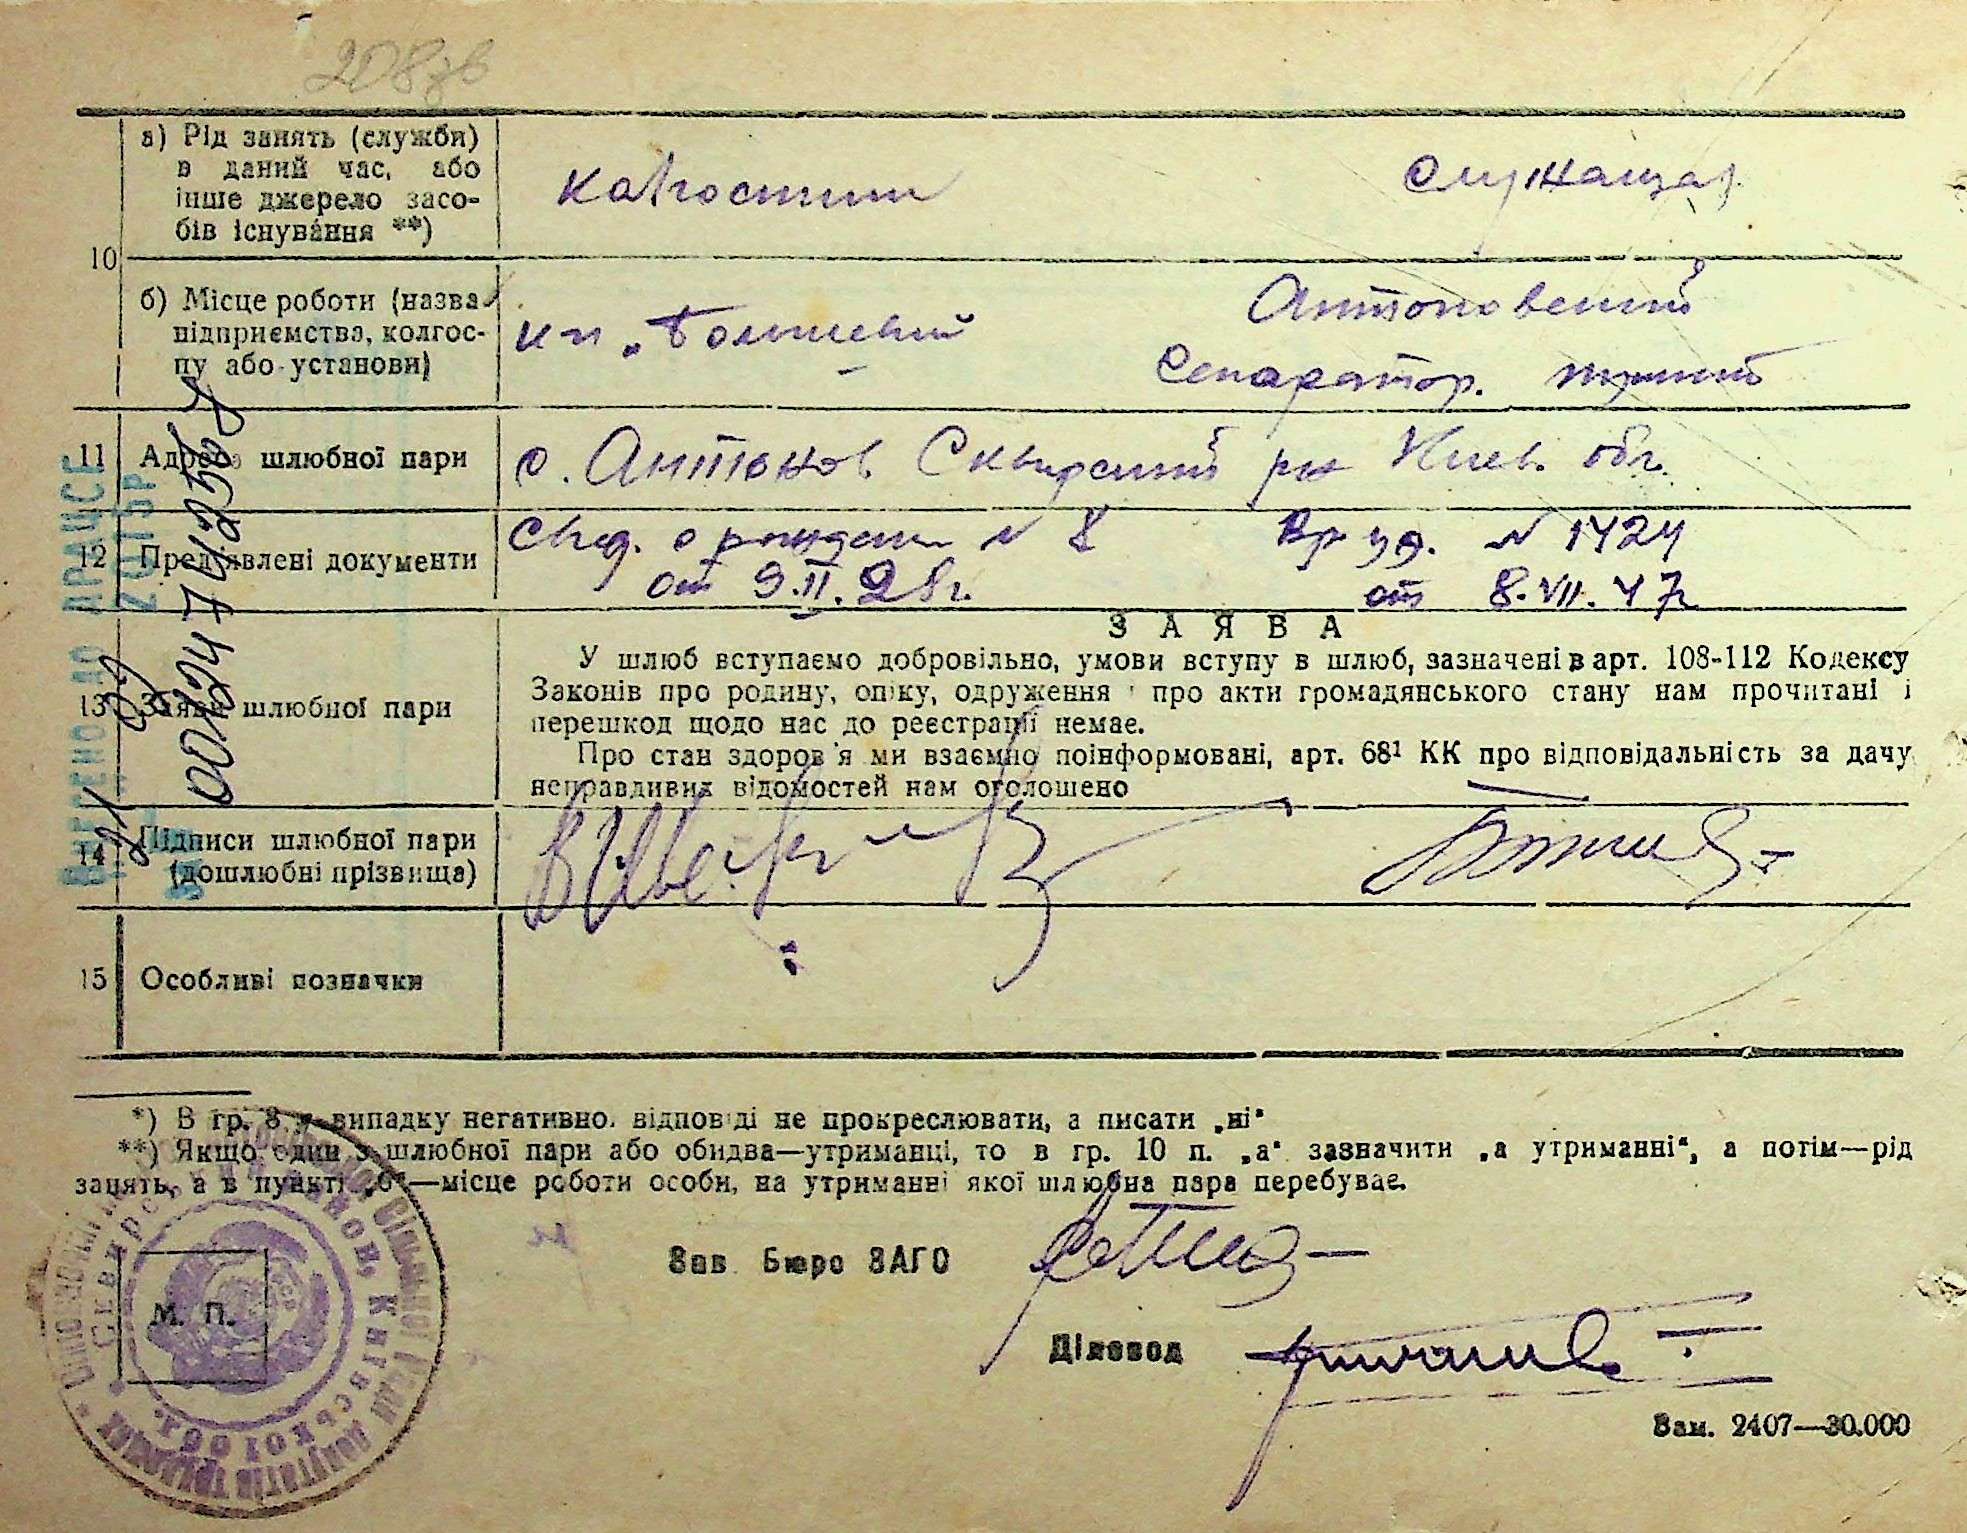 208 зв
а) Рід занять (служби)
в даний час, або
інше джерело засо-
бів існування **)
колгоспник
служащая
10
б) Місце роботи (назва
підприємства, колгос-
пу або установи)
к-п „Большевик
Антоновский
Сепаратор. пункт
11 Адреса шлюбної пари
с. Антонов Сквирский рн Киев. обл.
12 Пред'явлені документи
Свид. о рожден N 8
Вр уд. N 1424
от 9.II.28 г.
от 8.VII.47 г
13 Заява шлюбної пари
ЗАЯВА
У шлюб вступаємо добровільно, умови вступу в шлюб, зазначені в арт. 108-112 Кодексу
Законів про родину, опіку, одруження і про акти громадянського стану нам прочитані і
перешкод щодо нас до реєстрації немає.
Про стан здоров'я ми взаємно поінформовані, арт. 68¹ КК про відповідальність за дачу
неправдивих відомостей нам оголошено
14 Підписи шлюбної пари
(дошлюбні прізвища)
15 Особливі позначки
ВНЕСЕНО ДО ДРАЦСЕ
00247412568
*) В гр. 8 у випадку негативно. відповіді не прокреслювати, а писати „ні"
**) Якщо один з шлюбної пари або обидва—утриманці, то в гр. 10 п. „а" зазначити „а утриманні", а потім—рід
занять, а в пункті „б"—місце роботи особи, на утриманні якої шлюбна пара перебуває.
Зав. Бюро ЗАГС
М. П.
Діловод
Зам. 2407—30.000